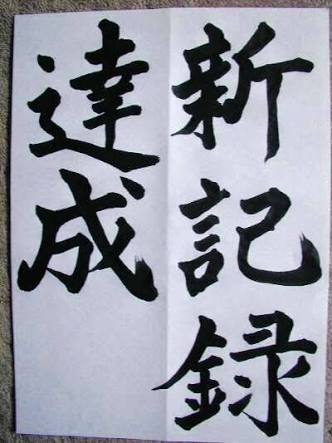 新記録
達成